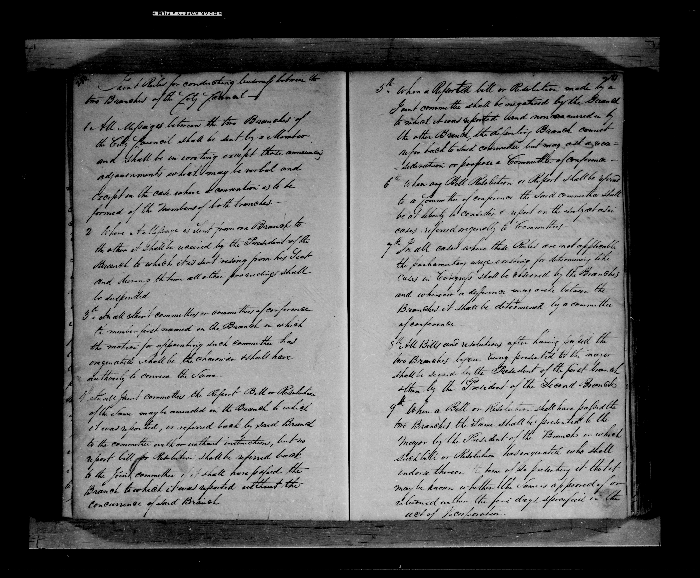 Joint Rules for conducting business between the
two Branches of the City Council
1. All Messages between the two Branches of
the City Council shall be sent by a Member
and shall be in writing except those announcing
adjournments which may be verbal and
except in the case where a convention is to be
formed of the Members of both branches.
2 When a Message is sent from one Branch to
the other it shall be received by the President of the
Branch to which it is sent rising from his Seat
and during the time all other proceedings shall
be suspended
3rd In all Joint committees or committees of conference
the member first named in the Branch in which
the motion for appointing such committee has
originated shall be the convener & shall have
authority to convene the Same.
In all Joint committees the Report Bill or Resolution
of the Same may be amended in the Branch to which
it was reported, or referred back by said Branch
to the committee with or without instructions, but no
report bill or Resolution shall be referred back
to the Joint committee if it shall have passed the
Branch to which it was reported without the
concurrence of said Branch
5th When a Reported bill or Resolution made by a
Joint committee shall be negatived by the Branch
to which it was reported and non concurred in by
the other Branch, the dissenting Branch cannot
refer back to said committee but may ask a recon-
sideration or propose a Committee of conference
6th When any Bill Resolution or Report shall be referred
to a Committee of conference the Said committee shall
be at liberty to consider & report on the subject as in
cases referred originally to Committees.
7th In all cases where these Rules are not applicable
the parliamentary usage for determining like
cases in Congress shall be observed by the Branches
and whenever a difference may arise between the
Branches it shall be determined by a committee
of conference
8th All Bills and resolutions after having passed the
two Branches before being presented to the mayor
shall be signed by the President of the first branch
& then by the President of the Second Branch
9th When a Bill or Resolution shall have passed the
two Branches the Same shall be presented to the
Mayor by the President of the Branch in which
such bill or Resolution has originated who shall
endorse thereon the time of its presenting it that it
may be known whether the same is approved or
returned within the five days specified in the
act of Incorporation.